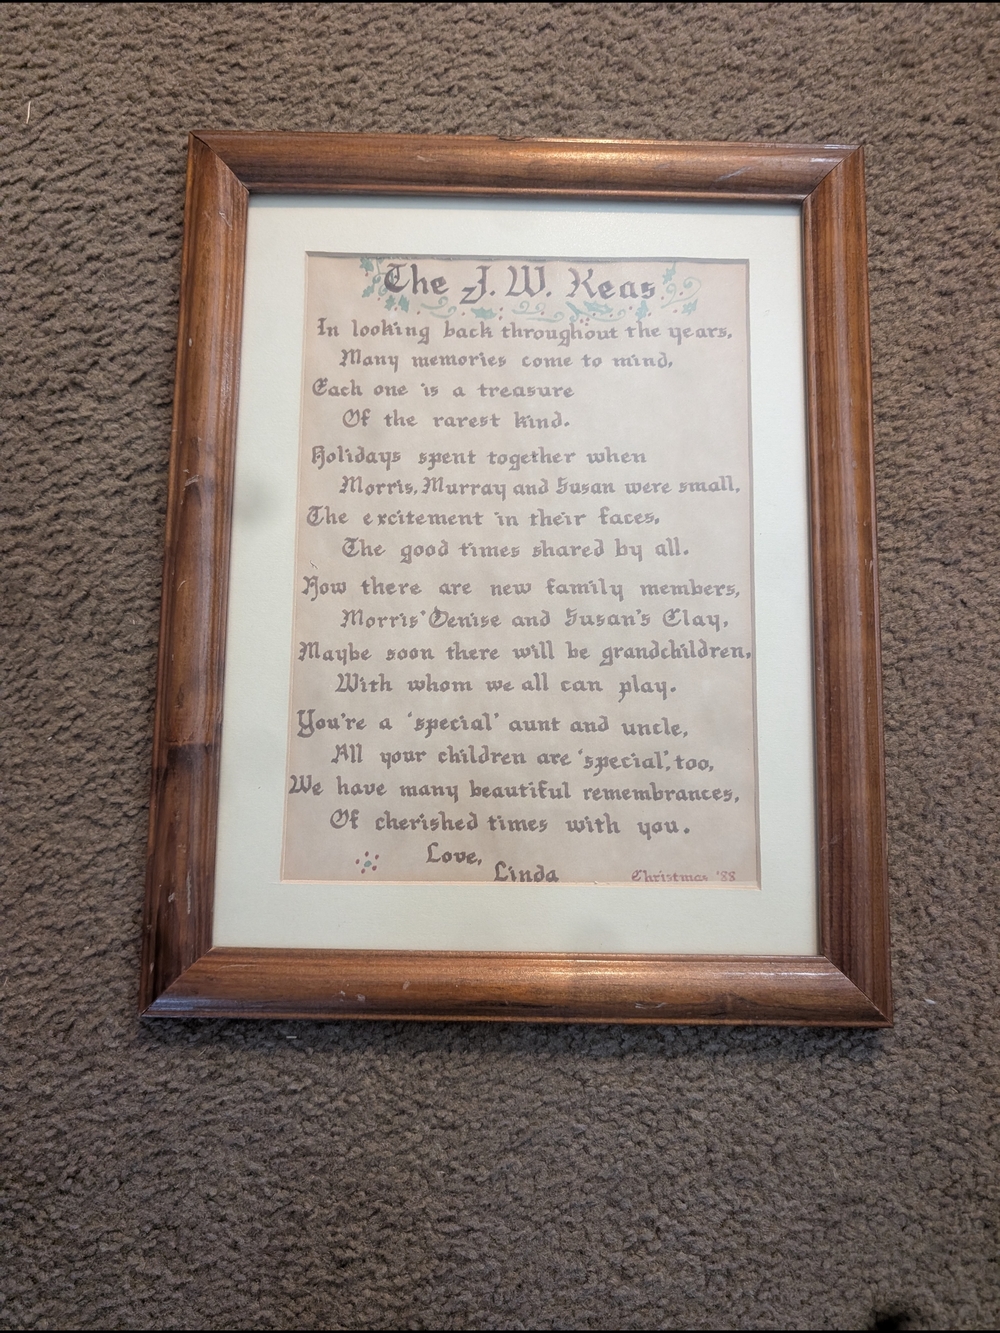 The J. W. Keas
In looking back throughout the years,
Many memories come to mind,
Each one is a treasure
Of the rarest kind.
Holidays spent together when
Morris, Murray and Susan were small,
The excitement in their faces,
The good times shared by all.
Now there are new family members,
Morris' Denise and Susan's Clay,
Maybe soon there will be grandchildren,
With whom we all can play.
You're a 'special' aunt and uncle,
All your children are 'special', too,
We have many beautiful remembrances,
Of cherished times with you.
Love,
Linda
Christmas '88